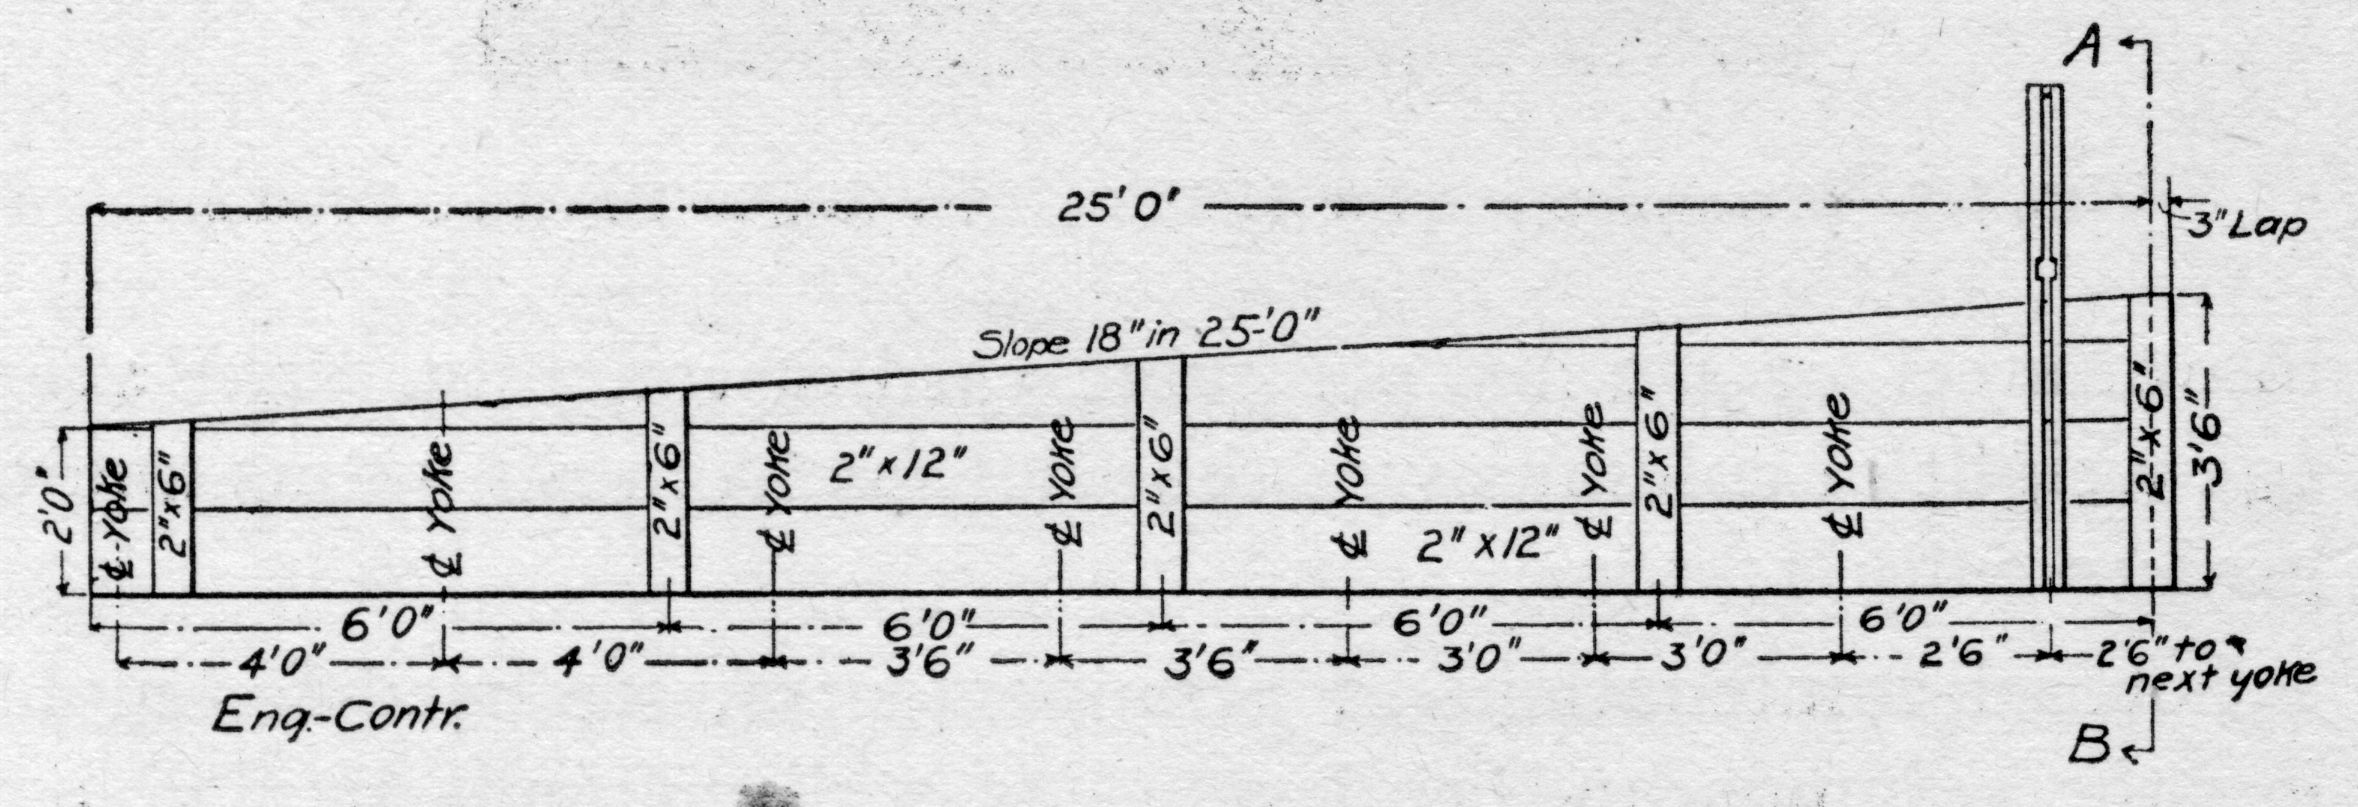 A
25'0"
3" Lap
Slope 18" in 25'-0"
2'0"
℄ Yoke
2"x6"
℄ Yoke
2"x6"
℄ Yoke
2"x12"
℄ Yoke
2"x6"
℄ Yoke
2"x12"
℄ Yoke
2"x6"
℄ Yoke
2"x6"
3'6"
6'0" 6'0" 6'0" 6'0"
4'0" 4'0" 3'6" 3'6" 3'0" 3'0" 2'6" 2'6" to
next yoke
Eng.-Contr.
B